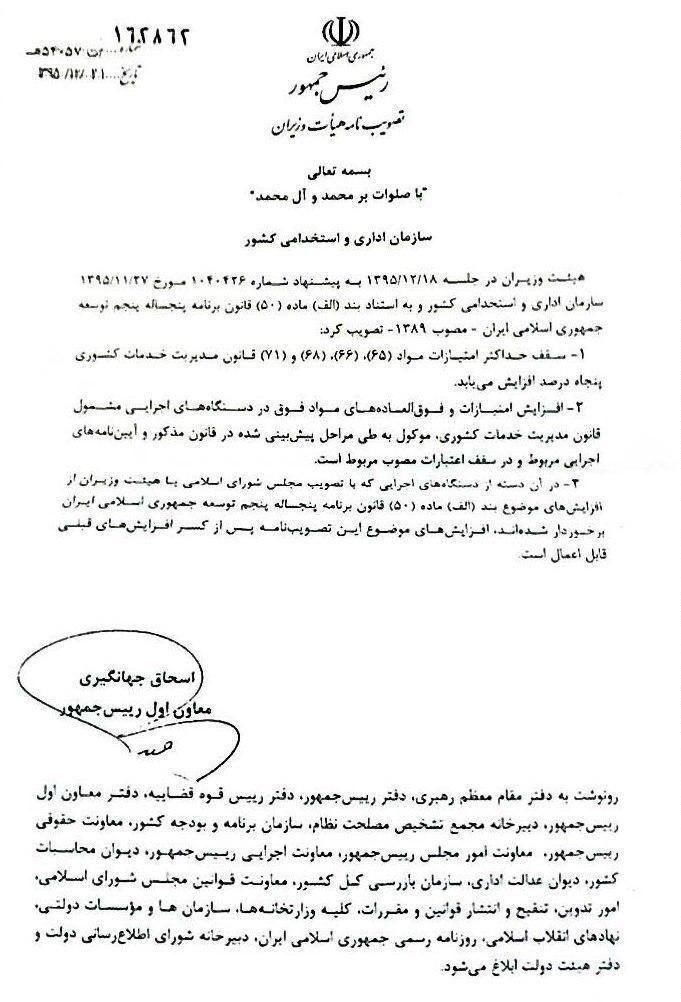 ۱۶۲۸۶۲
شماره.../ت۵۴۰۵۷هـ
تاریخ ۱۳۹۵/۱۲/۲۱
جمهوری اسلامی ایران
رئیس جمهور
تصویب نامه هیأت وزیران
بسمه تعالی
"با صلوات بر محمد و آل محمد"
سازمان اداری و استخدامی کشور
هیئت وزیران در جلسه ۱۳۹۵/۱۲/۱۸ به پیشنهاد شماره ۱۰۴۰۴۲۶ مورخ ۱۳۹۵/۱۱/۲۷
سازمان اداری و استخدامی کشور و به استناد بند (الف) ماده (۵۰) قانون برنامه پنجساله پنجم توسعه
جمهوری اسلامی ایران - مصوب ۱۳۸۹- تصویب کرد:
۱- سقف حداکثر امتیازات مواد (۶۵)، (۶۶)، (۶۸) و (۷۱) قانون مدیریت خدمات کشوری
پنجاه درصد افزایش می‌یابد.
۲- افزایش امتیازات و فوق‌العاده‌های مواد فوق در دستگاه‌های اجرایی مشمول
قانون مدیریت خدمات کشوری، موکول به طی مراحل پیش‌بینی شده در قانون مذکور و آیین‌نامه‌های
اجرایی مربوط و در سقف اعتبارات مصوب مربوط است.
۳- در آن دسته از دستگاه‌های اجرایی که با تصویب مجلس شورای اسلامی یا هیئت وزیران از
افزایش‌های موضوع بند (الف) ماده (۵۰) قانون برنامه پنجساله پنجم توسعه جمهوری اسلامی ایران
برخوردار شده‌اند، افزایش‌های موضوع این تصویب‌نامه پس از کسر افزایش‌های قبلی
قابل اعمال است.
اسحاق جهانگیری
معاون اول رییس‌جمهور
رونوشت به دفتر مقام معظم رهبری، دفتر رییس‌جمهور، دفتر رییس قوه قضاییه، دفتر معاون اول
رییس‌جمهور، دبیرخانه مجمع تشخیص مصلحت نظام، سازمان برنامه و بودجه کشور، معاونت حقوقی
رییس‌جمهور، معاونت امور مجلس رییس‌جمهور، معاونت اجرایی رییس‌جمهور، دیوان محاسبات
کشور، دیوان عدالت اداری، سازمان بازرسی کل کشور، معاونت قوانین مجلس شورای اسلامی،
امور تدوین، تنقیح و انتشار قوانین و مقررات، کلیه وزارتخانه‌ها، سازمان ها و مؤسسات دولتی،
نهادهای انقلاب اسلامی، روزنامه رسمی جمهوری اسلامی ایران، دبیرخانه شورای اطلاع‌رسانی دولت و
دفتر هیئت دولت ابلاغ می‌شود.